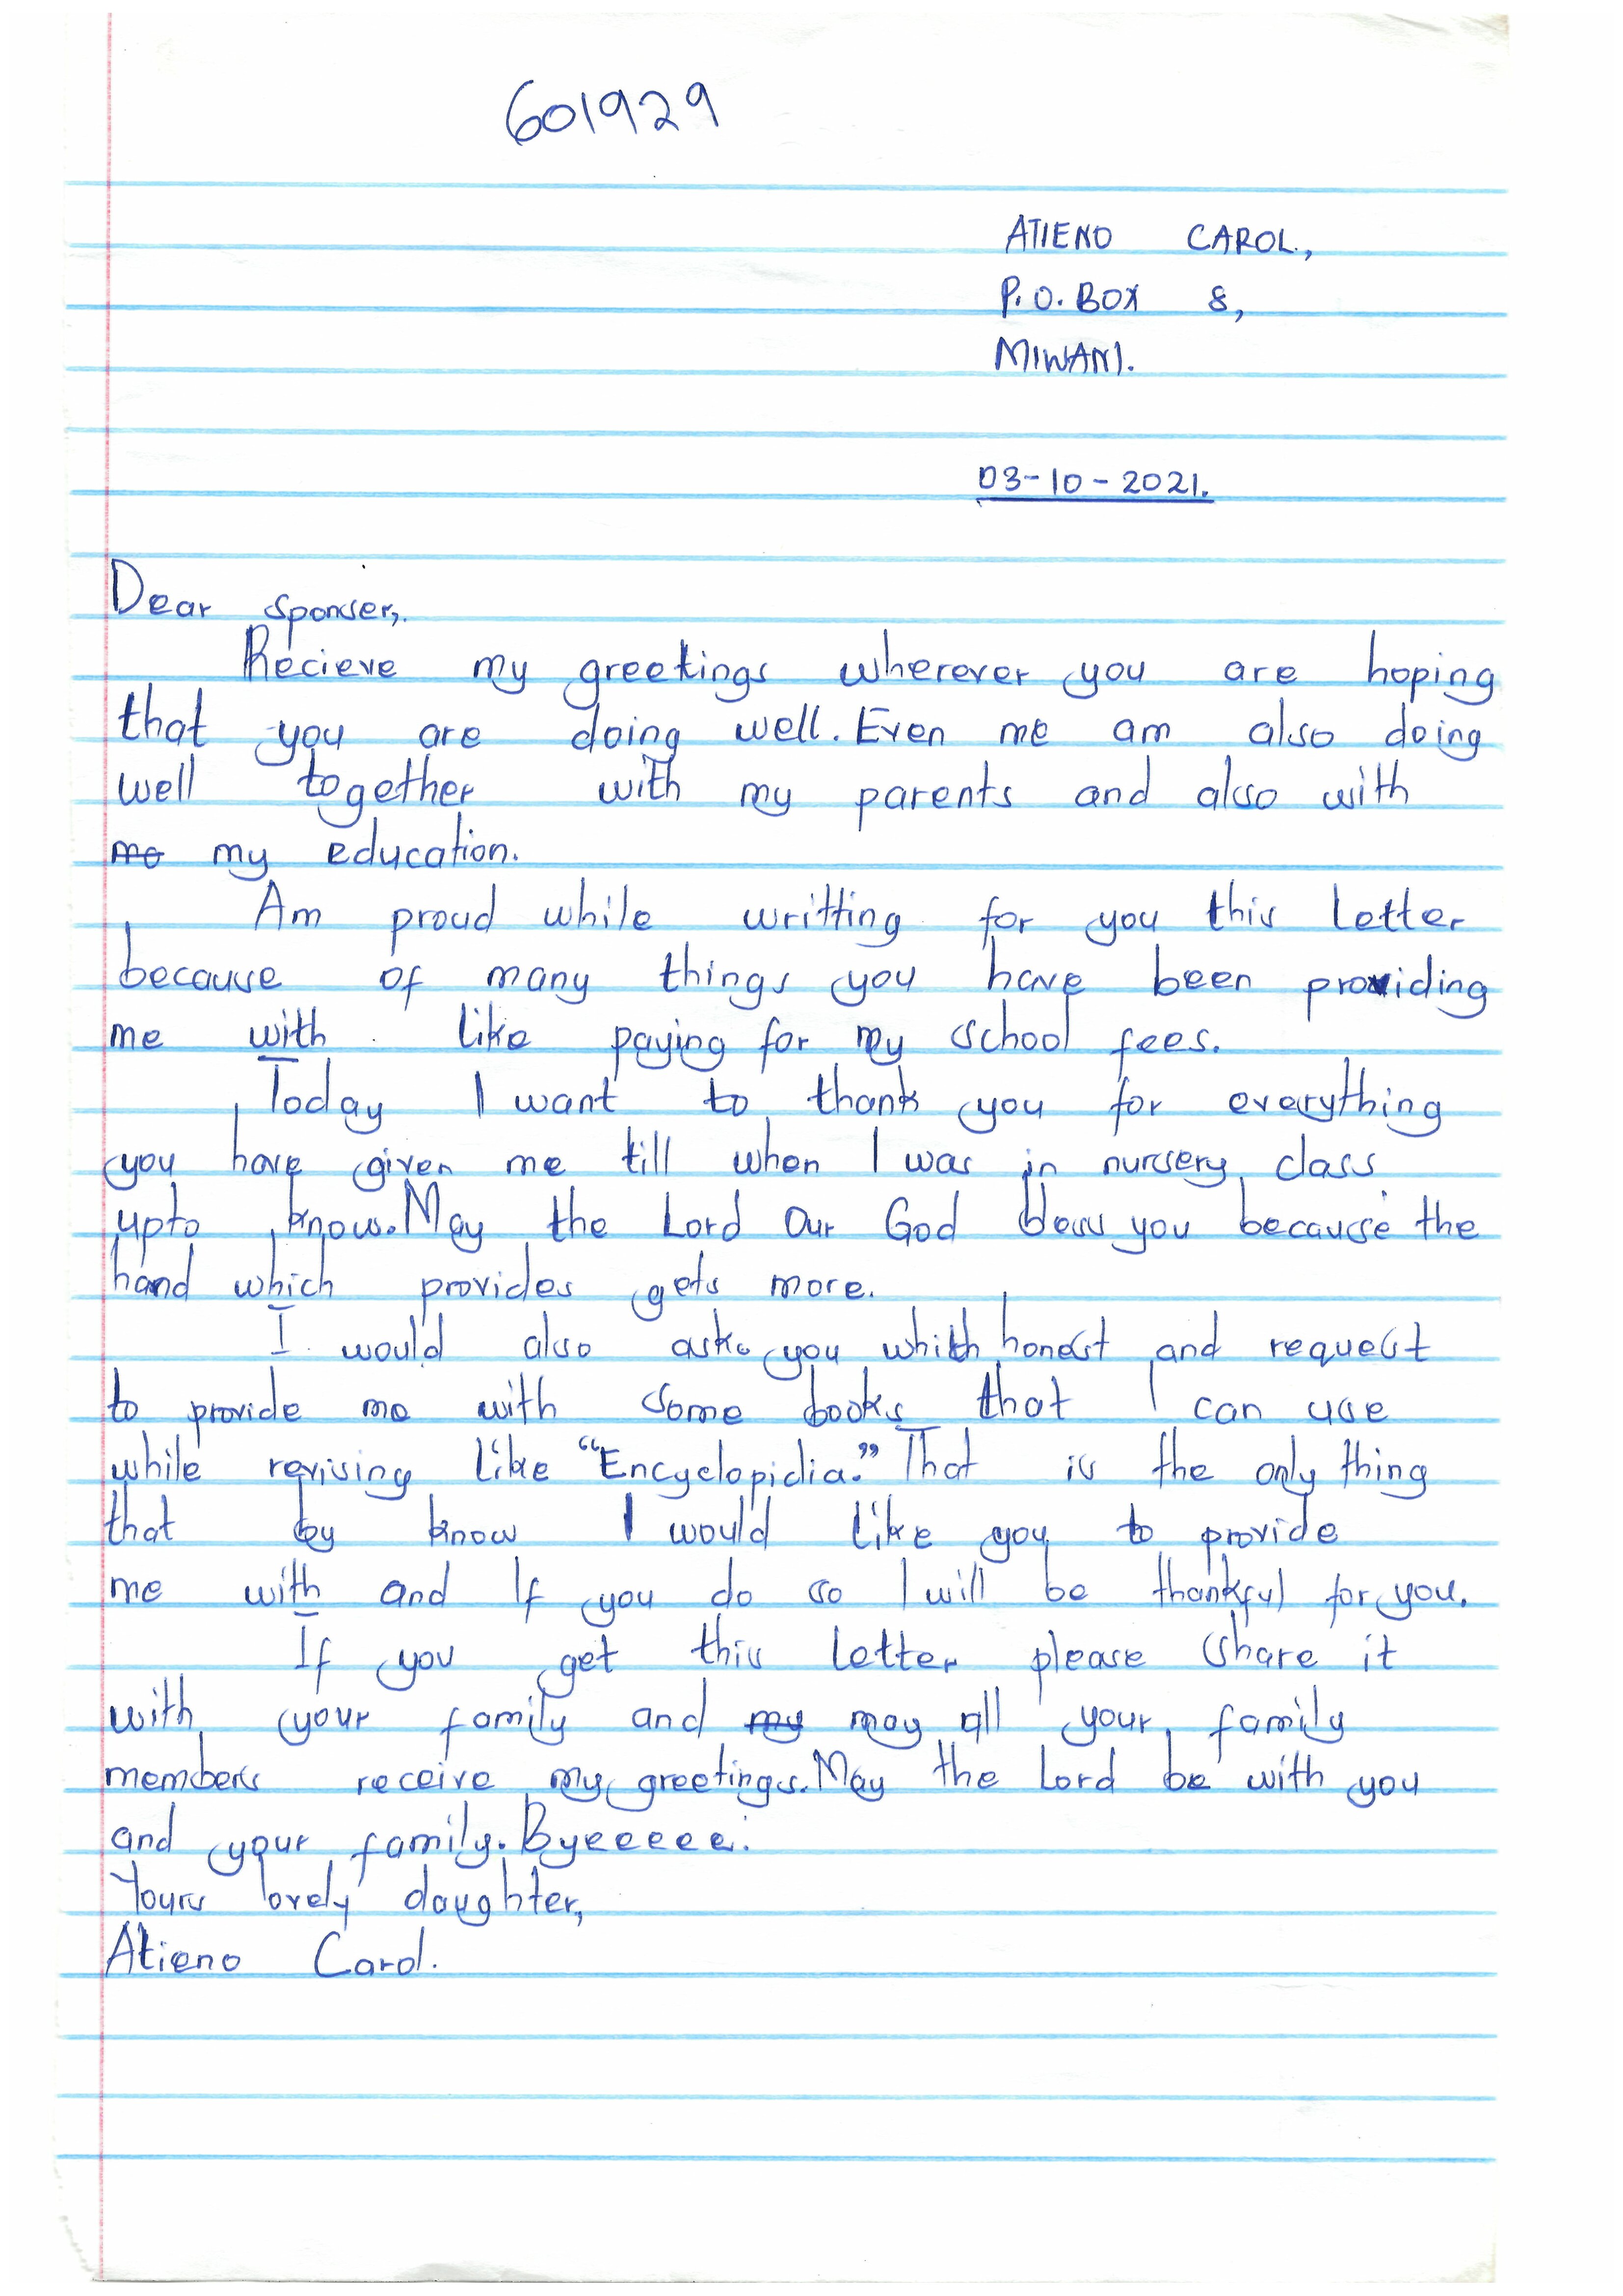 601929
ATIENO CAROL,
P.O. BOX 8,
MIWANI.
03-10-2021.
Dear sponser,
Recieve my greetings wherever you are hoping
that you are doing well. Even me am also doing
well together with my parents and also with
me my education.
Am proud while writting for you this letter
because of many things you have been providing
me with like paying for my school fees.
Today I want to thank you for everything
you have given me till when I was in nursery class
upto know. May the Lord Our God bless you because the
hand which provides gets more.
I would also ask you which honest and request
to provide me with some books that I can use
while revising like "Encyclopidia." That is the only thing
that by know I would like you to provide
me with and If you do so I will be thankful for you.
If you get this letter please share it
with your family and my may all your family
members receive my greetings. May the Lord be with you
and your family. Byeeeee.
Yours lovely daughter,
Atieno Carol.